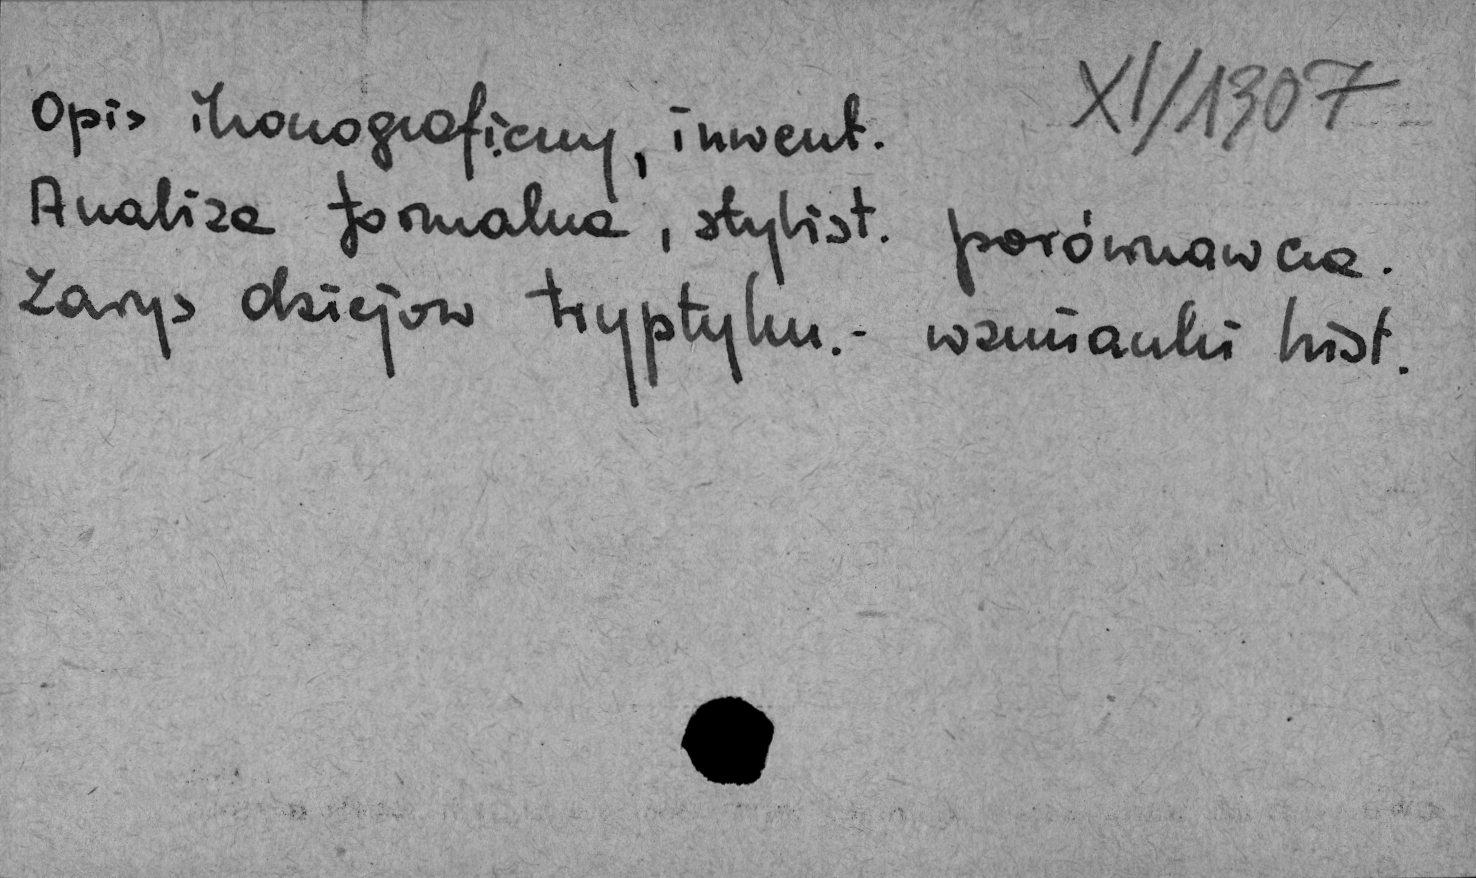 XI/1307
Opis ikonograficzny, inwent.
Analiza formalna, stylist. porównawcza.
Zarys dziejow tryptyku.- wzmianki hist.